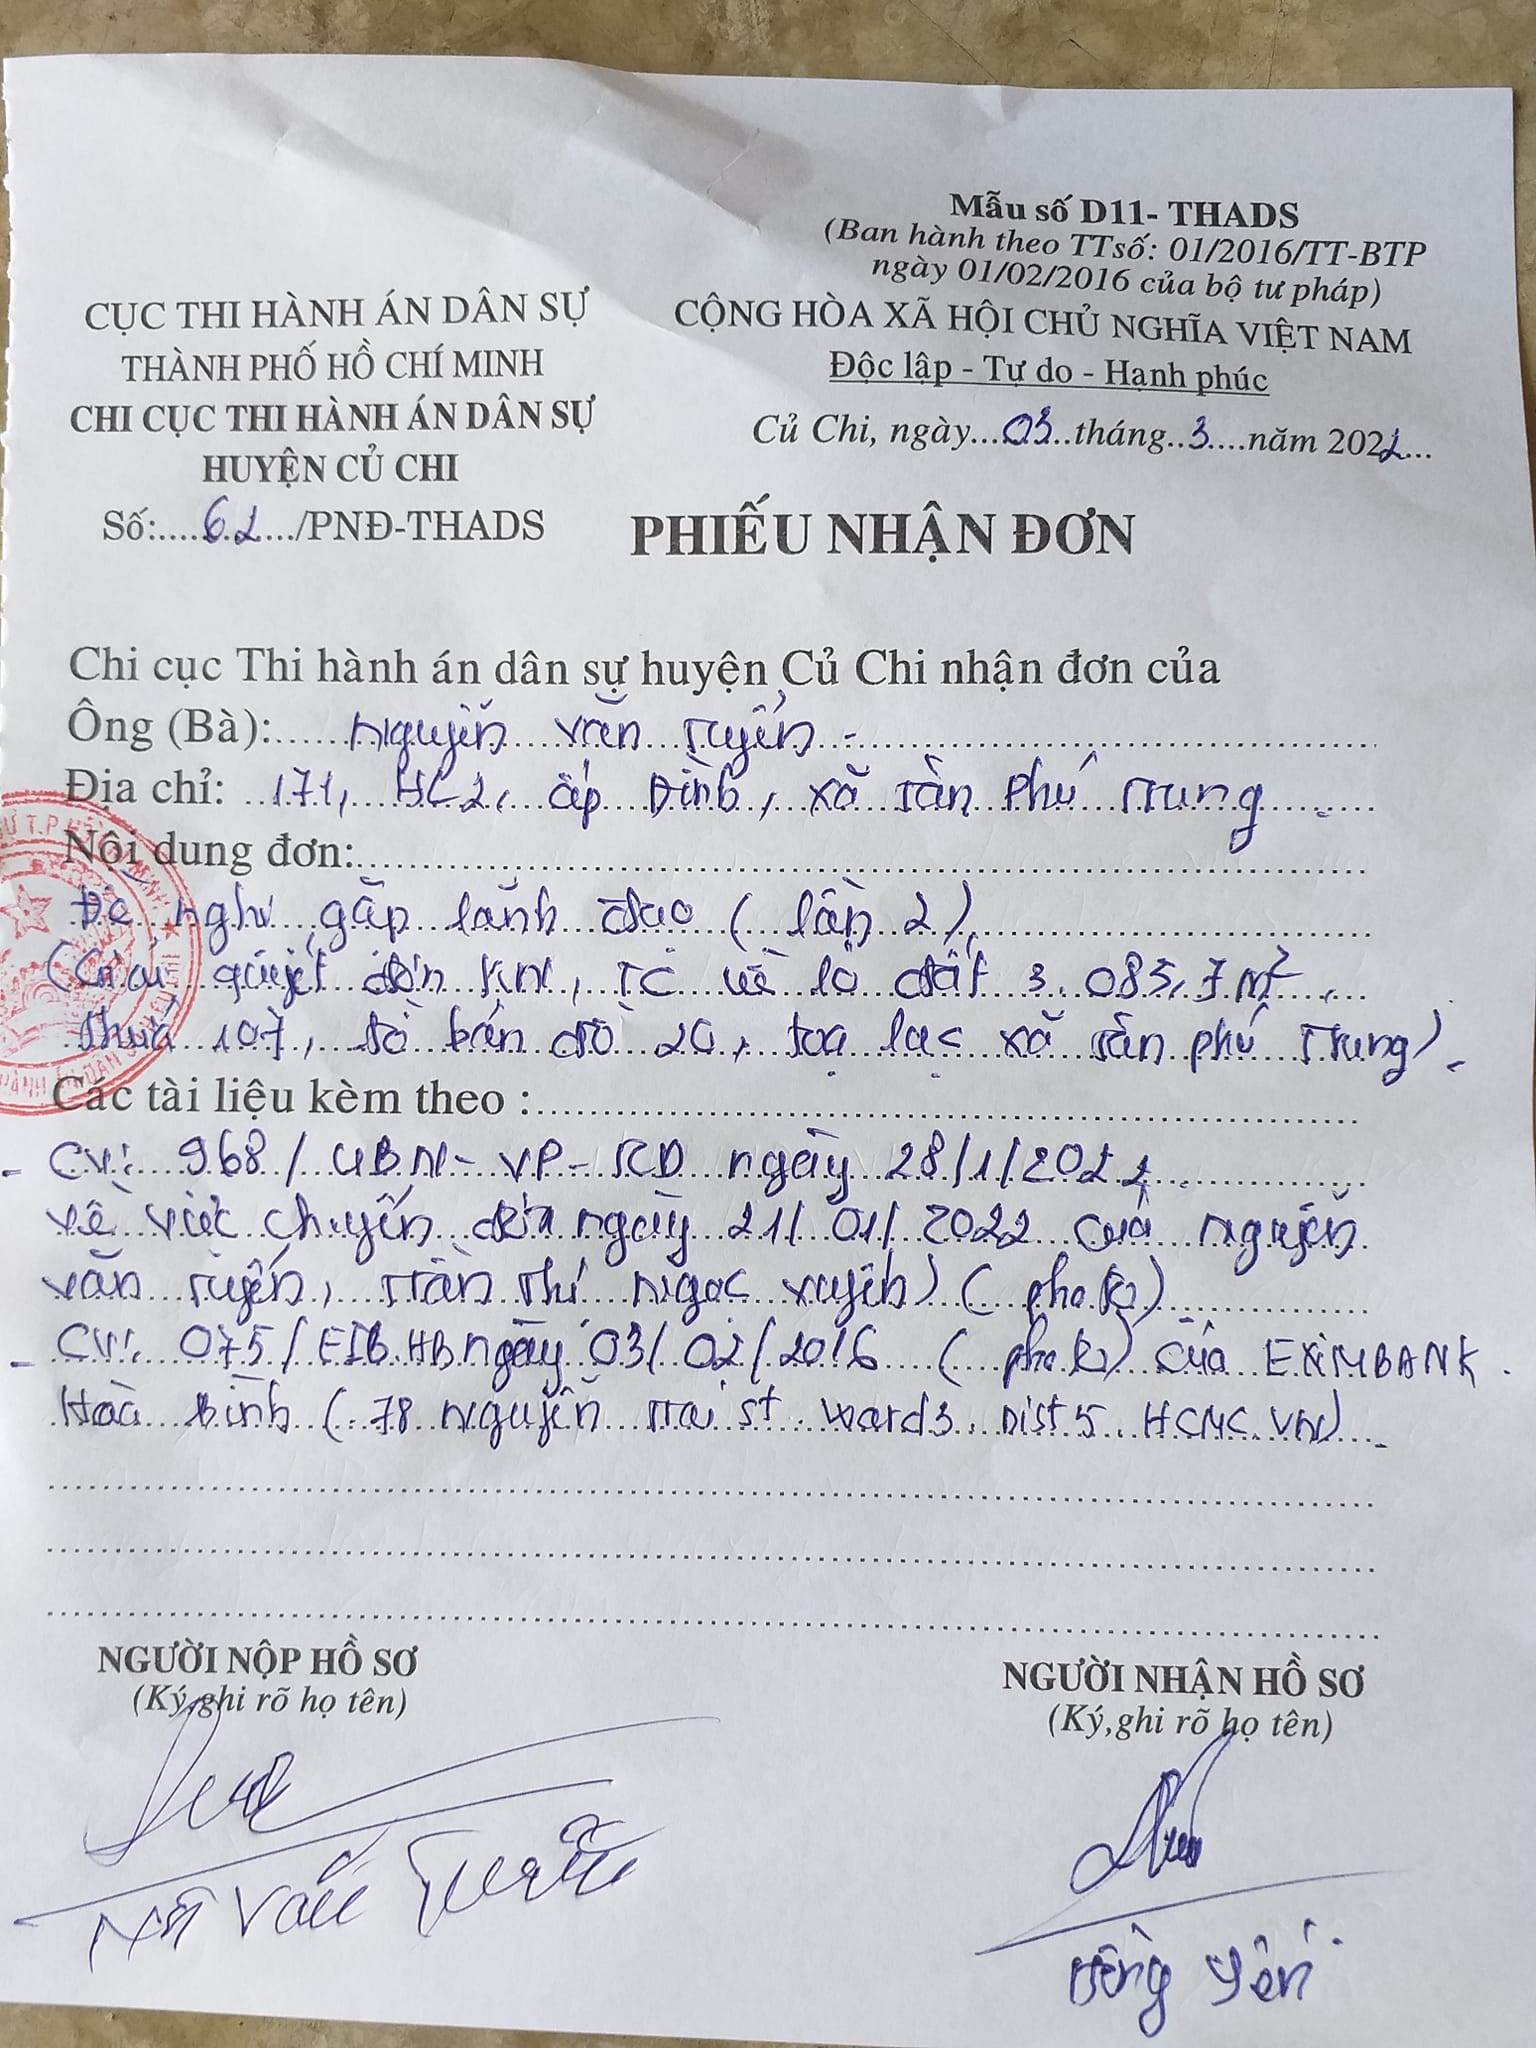 Mẫu số D11- THADS
(Ban hành theo TTsố: 01/2016/TT-BTP
ngày 01/02/2016 của bộ tư pháp)
CỤC THI HÀNH ÁN DÂN SỰ
THÀNH PHỐ HỒ CHÍ MINH
CHI CỤC THI HÀNH ÁN DÂN SỰ
HUYỆN CỦ CHI
Số:.....62..../PNĐ-THADS
CỘNG HÒA XÃ HỘI CHỦ NGHĨA VIỆT NAM
Độc lập - Tự do - Hạnh phúc
Củ Chi, ngày...03..tháng..3....năm 2022...
PHIẾU NHẬN ĐƠN
Chi cục Thi hành án dân sự huyện Củ Chi nhận đơn của
Ông (Bà): Nguyễn Văn Tuyển -
Địa chỉ: 171, HL2, ấp Đình, xã Tân Phú Trung
Nội dung đơn:
Đề nghị gặp lãnh đạo (lần 2)
(Giải quyết đơn KN, TC về lô đất 3.083,7 m²,
thửa 107, tờ bản đồ 20, tọa lạc xã Tân Phú Trung).
Các tài liệu kèm theo :
- CV: 968/UBND-VP-TCD ngày 28/1/2022
về việc chuyển đơn ngày 21/01/2022 của Nguyễn
Văn Tuyển, Trần Thị Ngọc Xuyến) (photo)
- CV: 075/EIB.HB ngày 03/02/2016 (photo) của EXIMBANK.
Hoà Bình (78 Nguyễn Trãi st Ward 3. Dist 5. HCMC. VN)
NGƯỜI NỘP HỒ SƠ
(Ký,ghi rõ họ tên)
Văn Tuyển
NGƯỜI NHẬN HỒ SƠ
(Ký,ghi rõ họ tên)
Yến